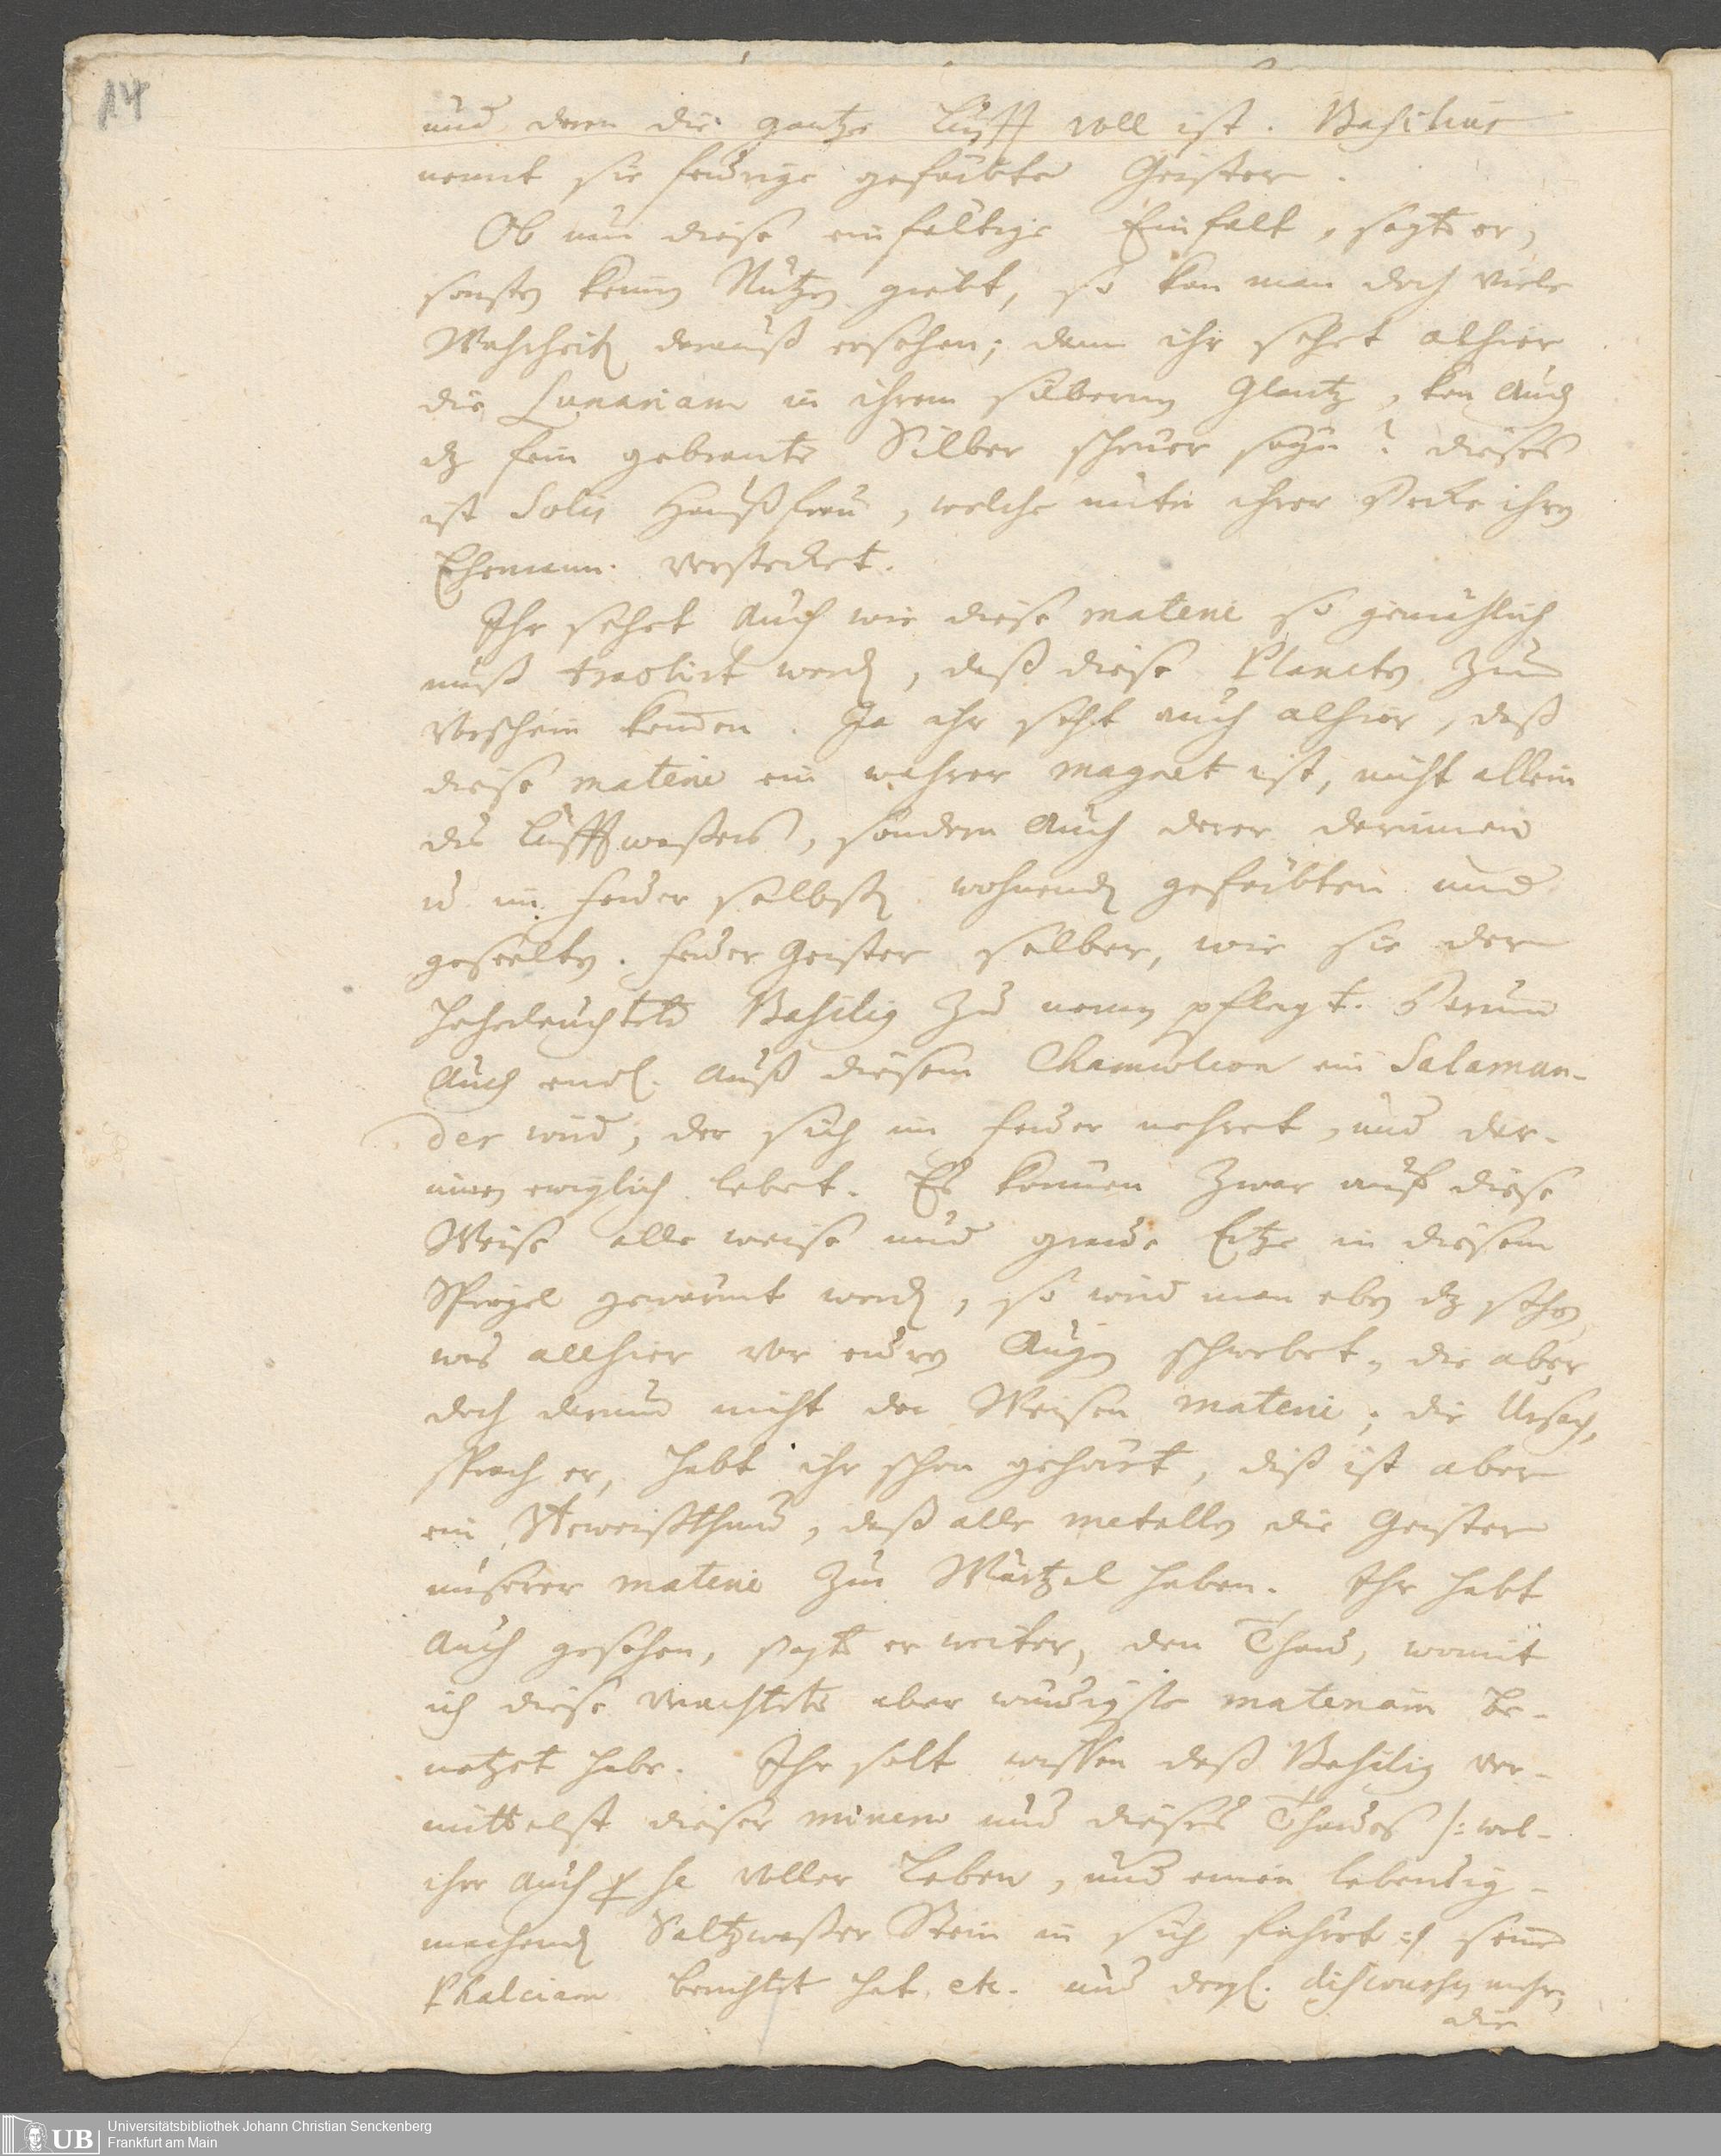 14
und deren die gantze Lufft voll ist. Basilius
nennt sie feurige gefärbte Geister.
Ob nun diese einfältige Einfalt, sagte er,
sonsten keinen Nutzen giebt, so kan man doch viele
Wahrheiten darauß ersehen; dann ihr sehet alhier
die Lunariam in ihrem silbernen Glantz, kan auch
dz fein gebrante Silber schöner seyn? dieses
ist Solis Haußfrau, welche unter ihrer Decke ihren
Ehemann verstecket.
Ihr sehet auch wie diese materie so gemählich
muß tractirt werden, daß diese Planeten zum
Vorschein kommen. Ja ihr seht auch alhier, daß
diese materie ein wahrer magnet ist, nicht allein
des Lufftwaßers, sondern auch derer darinnen
u im feuer selbsten wohnenden gefärbten und
geseelten feuer Geister selber, wie sie der
hocherleuchtete Basilius zu nennen pflegt. Darum
auch endl. auß diesem Chamæleon ein Salaman-
der wird, der sich im feuer nehret, und dar-
innen ewiglich lebet. Es können zwar auf diese
Weise alle weise und graue Ertze in diesem
Spiegel gewärmt werden, so wird man eben dz sehen
was allhier vor euren Augen schwebet, die aber
doch darum nicht der Weisen materie; die Ursach,
sprach er, habt ihr schon gehöret, diß ist aber
ein Beweißthum, daß alle metallen die Geister
unserer materie zur Wurtzel haben. Ihr habt
auch gesehen, sagte er weiter, den Thau, womit
ich diese verachtete aber würdigste materiam be-
netzet habe. Ihr solt wissen daß Basilius ver-
mittelst dieser minera und dieses Thaues /: wel-
cher auch per se voller Leben, und einen lebendig-
machenden Saltzwaßer Stein in sich führet :/ seine
Phalaiam bereitet hat, etc. und dergl. discoursen mehr,
die
Universitätsbibliothek Johann Christian Senckenberg
Frankfurt am Main
UB